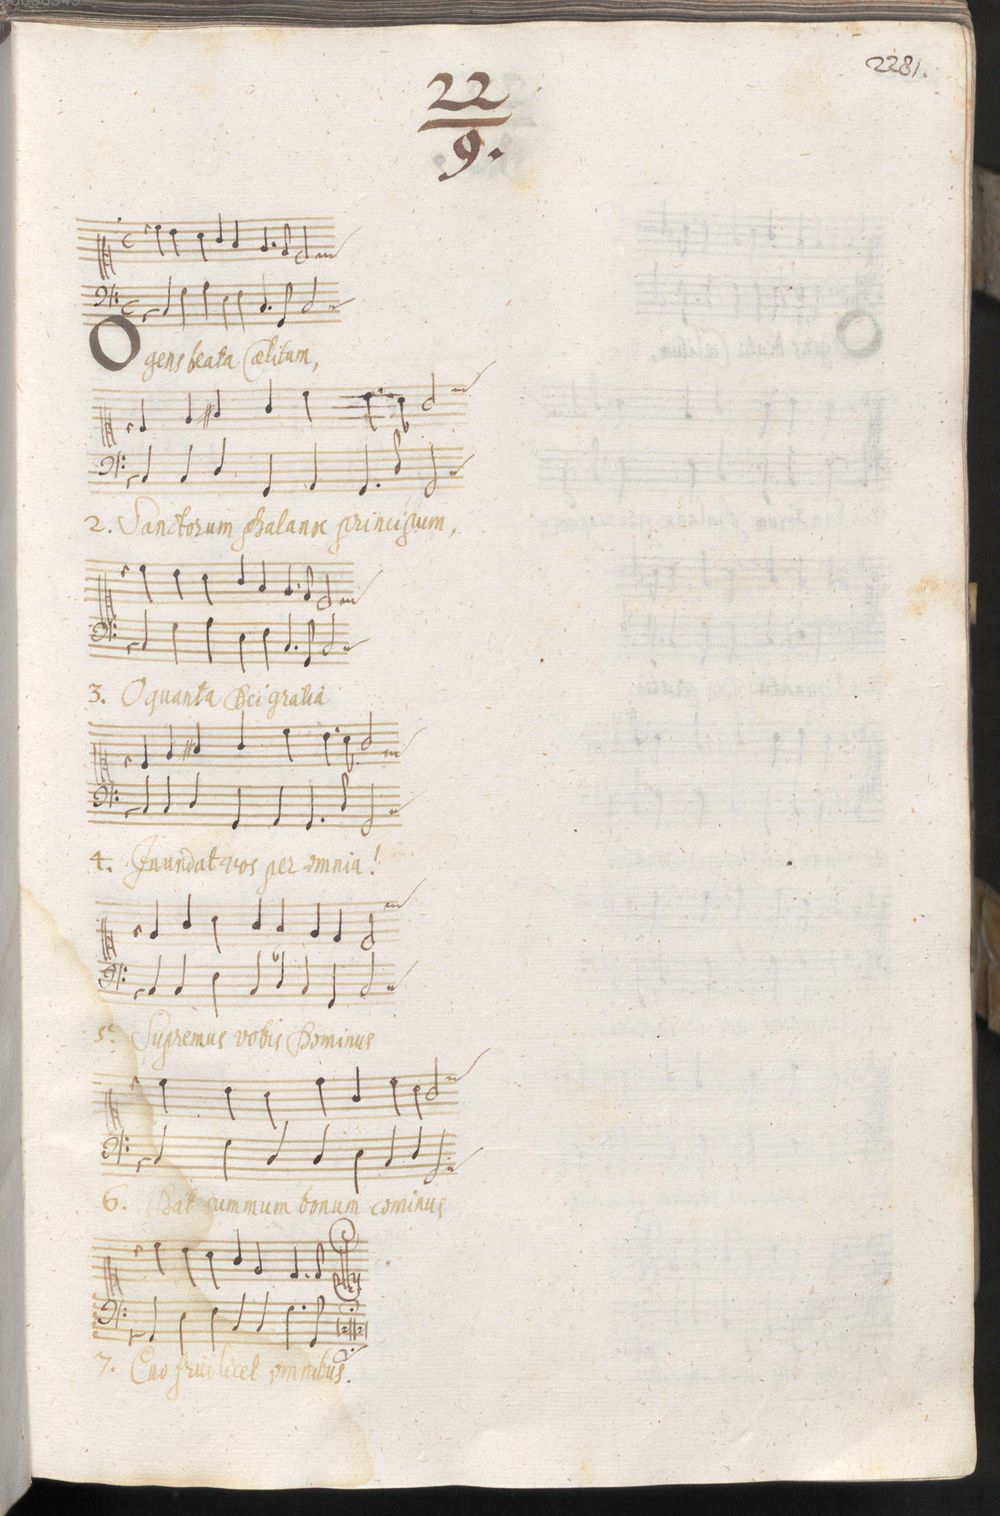 2281.
22
9.
O gens beata Cælitum,
2. Sanctorum phalanx principum,
3. O quanta Dei gratia
4. Inundat vos per omnia!
5. Supremus vobis Dominus
6. Dat summum bonum cominus
7. Quo frui licet omnibus.